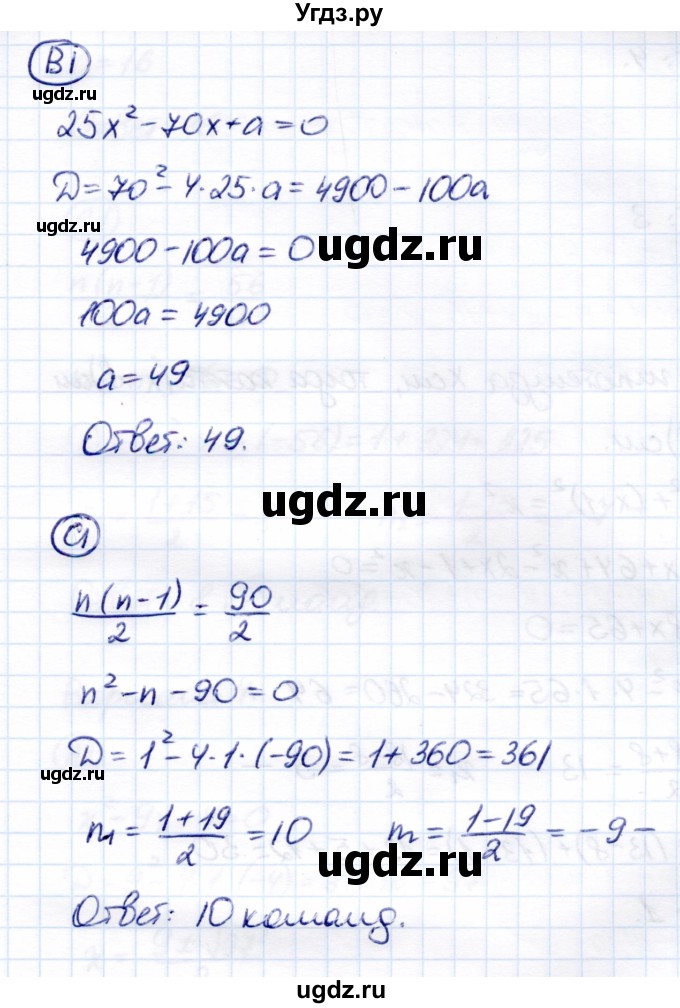 Угдз.ру
В1
ugdz.ru
25x² - 70x + a = 0
D = 70² - 4·25·a = 4900 - 100a
ugdz.ru
4900 - 100a = 0
ugdz.ru
100a = 4900
a = 49
Ответ: 49.
ugdz.ru
C1
n(n-1)/2 = 90/2
n² - n - 90 = 0
D = 1² - 4·1·(-90) = 1 + 360 = 361
ugdz.ru
n₁ = (1+19)/2 = 10    n = (1-19)/2 = -9 -
Ответ: 10 команд.
ugdz.ru
ugdz.ru